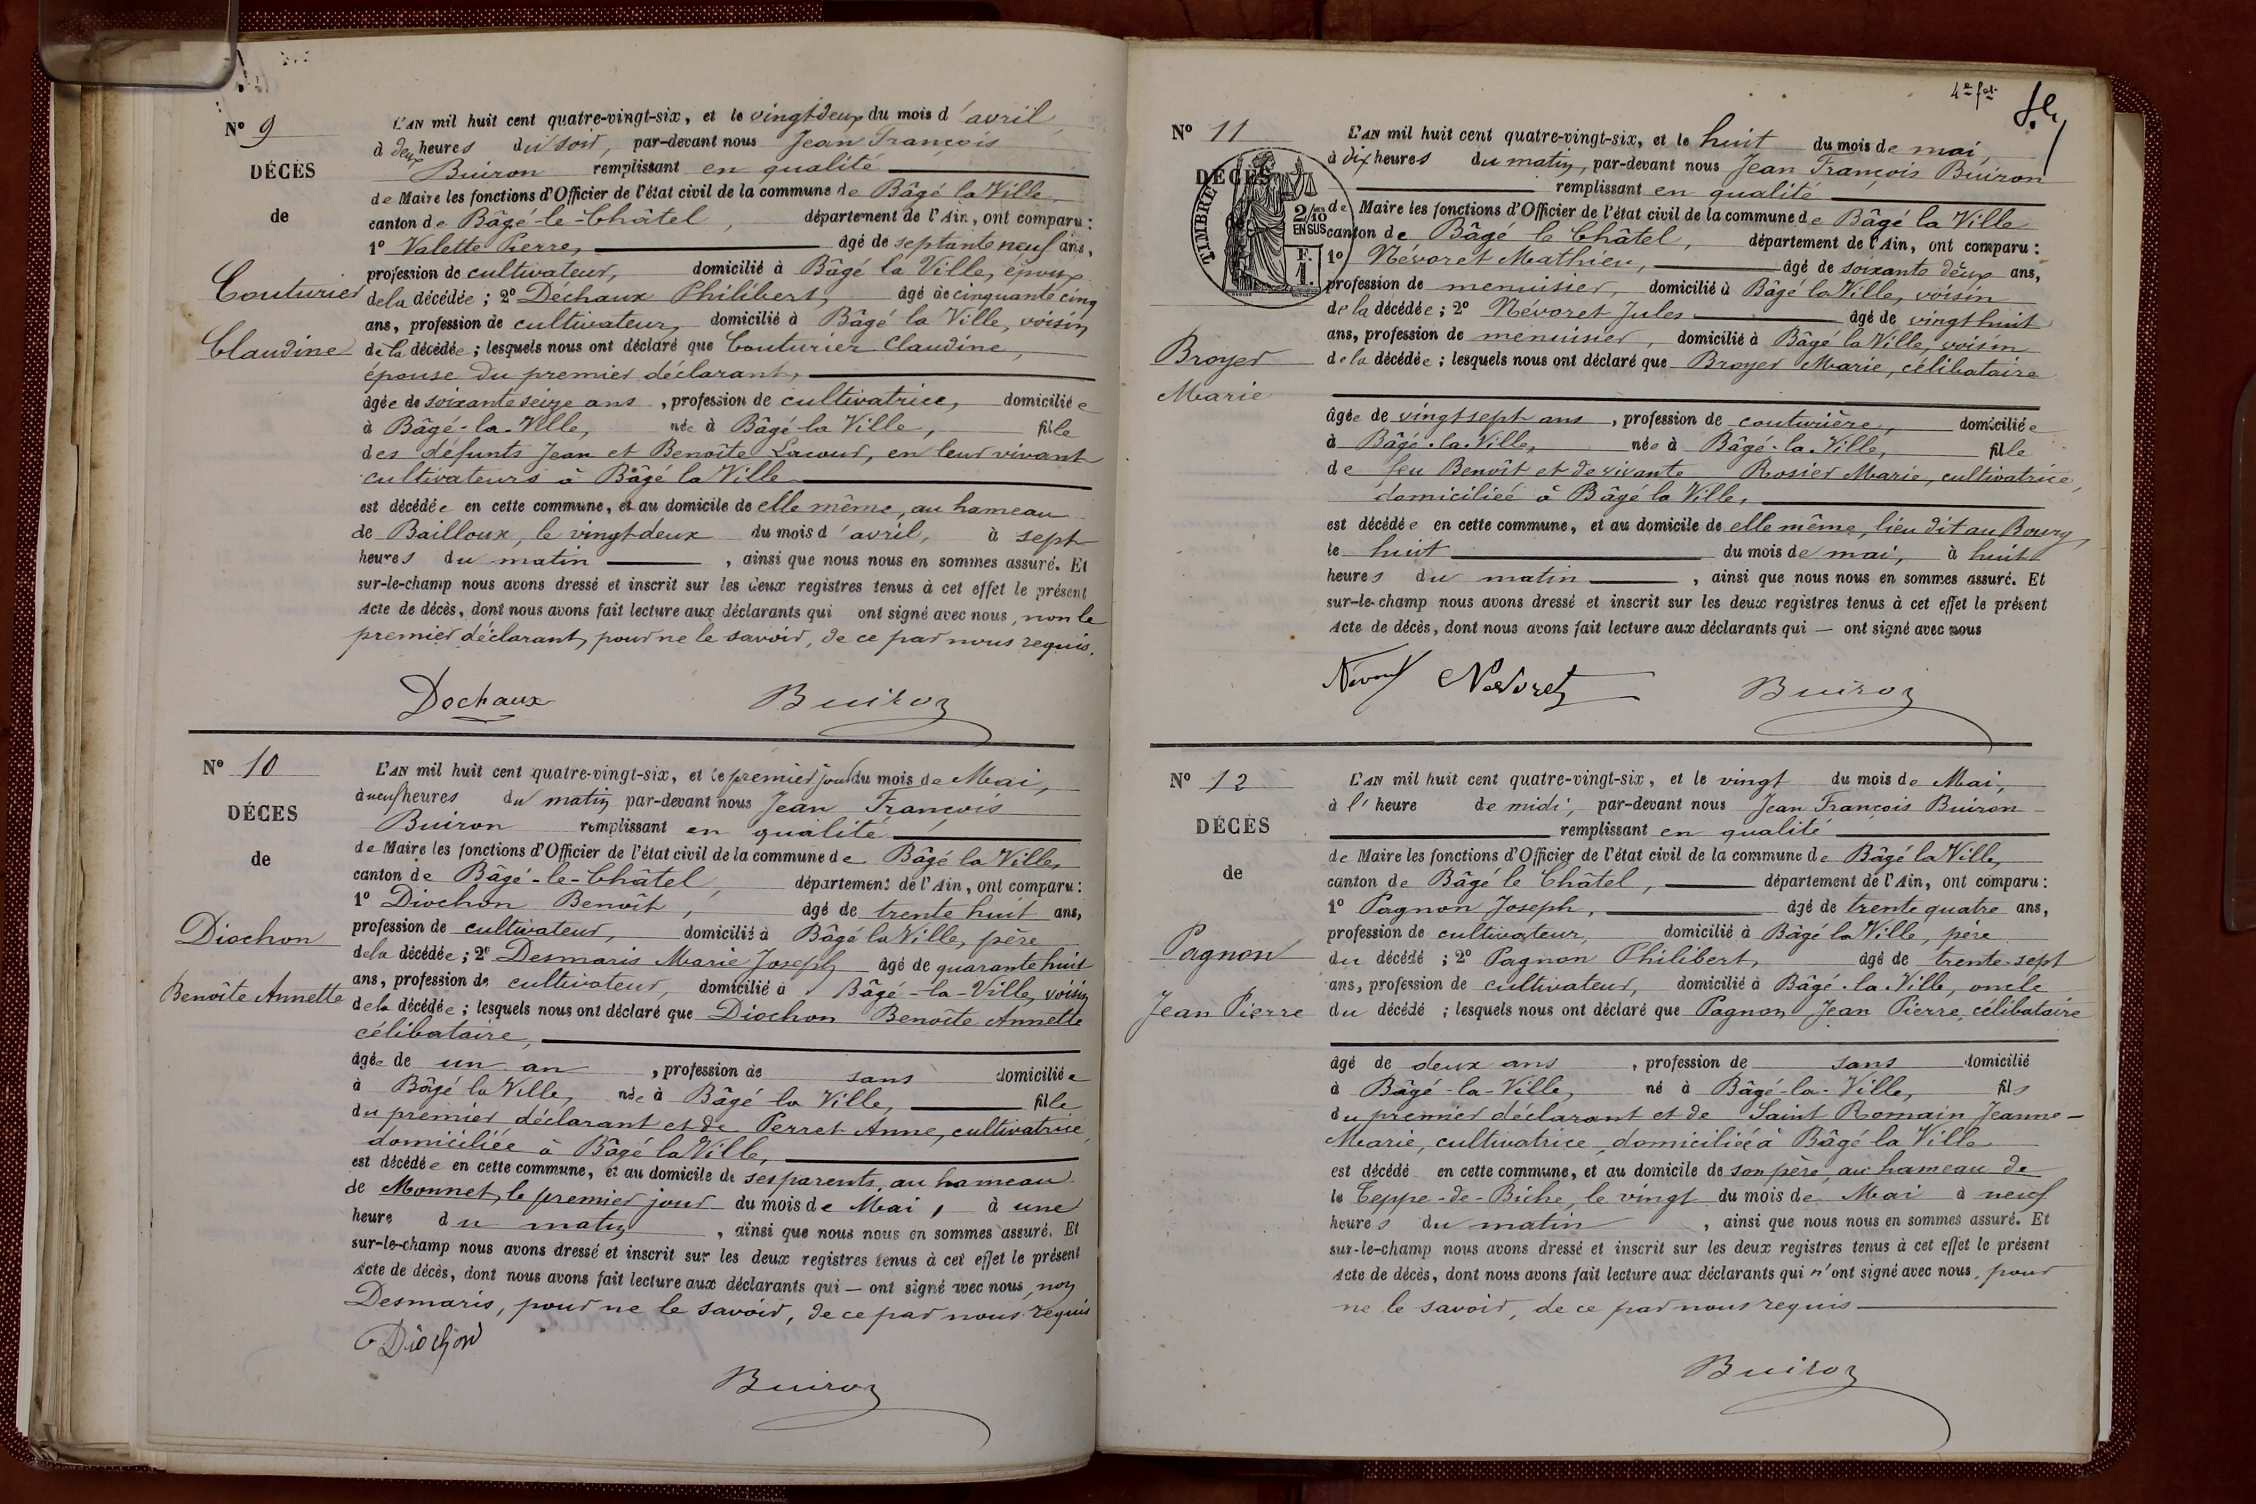 Nº 9
DÉCÈS
de
Couturier
Claudine
L'AN mil huit cent quatre-vingt-six, et le vingt deux du mois d'avril,
à deux heures du soir, par-devant nous Jean François
Buiron remplissant en qualité
de Maire les fonctions d'Officier de l'état civil de la commune de Bâgé la Ville,
canton de Bâgé-le-Châtel, département de l'Ain, ont comparu :
1º Valette Pierre, âgé de septante neuf ans,
profession de cultivateur, domicilié à Bâgé la Ville, époux
de la décédée ; 2º Déchaux Philibert, âgé de cinquante cinq
ans, profession de cultivateur, domicilié à Bâgé la Ville, voisin
de la décédée ; lesquels nous ont déclaré que Couturier Claudine,
épouse du premier déclarant,
âgée de soixante seize ans, profession de cultivatrice, domiciliée
à Bâgé-la-Ville, née à Bâgé-la Ville, fille
des défunts Jean et Benoîte Lacour, en leur vivant
cultivateurs à Bâgé la Ville
est décédée en cette commune, et au domicile de elle même, au hameau
de Bailloux, le vingt-deux du mois d'avril, à sept
heures du matin, ainsi que nous nous en sommes assuré. Et
sur-le-champ nous avons dressé et inscrit sur les deux registres tenus à cet effet le présent
Acte de décès, dont nous avons fait lecture aux déclarants qui ont signé avec nous, non le
premier déclarant, pour ne le savoir, de ce par nous requis.
Dochaux Buiron
Nº 10
DÉCES
de
Diochon
Benoîte Annette
L'AN mil huit cent quatre-vingt-six, et le premier jour du mois de Mai,
à neuf heures du matin par-devant nous Jean François
Buiron remplissant en qualité
de Maire les fonctions d'Officier de l'état civil de la commune de Bâgé la Ville,
canton de Bâgé-le-Châtel, département de l'Ain, ont comparu :
1º Diochon Benoît, âgé de trente huit ans,
profession de cultivateur, domicilié à Bâgé la Ville, père
de la décédée ; 2º Desmaris Marie Joseph âgé de quarante huit
ans, profession de cultivateur, domicilié à Bâgé-la-Ville, voisin
de la décédée ; lesquels nous ont déclaré que Diochon Benoîte Annette
célibataire,
âgée de un an, profession de sans domiciliée
à Bâgé la Ville, née à Bâgé la Ville, fille
du premier déclarant et de Perret Anne, cultivatrice,
domiciliée à Bâgé la Ville,
est décédée en cette commune, et au domicile de ses parents, au hameau
de Monnet, le premier jour du mois de Mai, à une
heure du matin, ainsi que nous nous en sommes assuré. Et
sur-le-champ nous avons dressé et inscrit sur les deux registres tenus à cet effet le présent
Acte de décès, dont nous avons fait lecture aux déclarants qui — ont signé avec nous, non
Desmaris, pour ne le savoir, de ce par nous requis
Diochon
Buiron
4e fet
Nº 11
DÉCÈS
TIMBRE
2/10
EN SUS
F.
1.
Broyer
Marie
L'AN mil huit cent quatre-vingt-six, et le huit du mois de mai,
à dix heures du matin, par-devant nous Jean François Buiron
remplissant en qualité
de Maire les fonctions d'Officier de l'état civil de la commune de Bâgé la Ville
canton de Bâgé le Châtel, département de l'Ain, ont comparu :
1º Névoret Mathieu, âgé de soixante deux ans,
profession de menuisier, domicilié à Bâgé la Ville, voisin
de la décédée ; 2º Névoret Jules âgé de vingt huit
ans, profession de menuisier, domicilié à Bâgé la Ville, voisin
de la décédée ; lesquels nous ont déclaré que Broyer Marie, célibataire
âgée de vingt sept ans, profession de couturière, domiciliée
à Bâgé-la-Ville, née à Bâgé-la-Ville, fille
de feu Benoît et de vivante Rosier Marie, cultivatrice,
domiciliée à Bâgé la Ville,
est décédée en cette commune, et au domicile de elle même, lieu dit au Bourg,
le huit du mois de mai, à huit
heures du matin, ainsi que nous nous en sommes assuré. Et
sur-le-champ nous avons dressé et inscrit sur les deux registres tenus à cet effet le présent
Acte de décès, dont nous avons fait lecture aux déclarants qui — ont signé avec nous
Névoret Buiron
Nº 12
DÉCÈS
de
Pagnon
Jean Pierre
L'AN mil huit cent quatre-vingt-six, et le vingt du mois de Mai,
à l'heure de midi, par-devant nous Jean François Buiron
remplissant en qualité
de Maire les fonctions d'Officier de l'état civil de la commune de Bâgé la Ville,
canton de Bâgé le Châtel, département de l'Ain, ont comparu :
1º Pagnon Joseph, âgé de trente quatre ans,
profession de cultivateur, domicilié à Bâgé la Ville, père
du décédé ; 2º Pagnon Philibert, âgé de trente-sept
ans, profession de cultivateur, domicilié à Bâgé-la-Ville, oncle
du décédé ; lesquels nous ont déclaré que Pagnon Jean Pierre, célibataire
âgé de deux ans, profession de sans domicilié
à Bâgé-la-Ville, né à Bâgé-la-Ville, fils
du premier déclarant et de Saint Romain Jeanne-
Marie, cultivatrice, domiciliée à Bâgé la Ville
est décédé en cette commune, et au domicile de son père, au hameau de
la Teppe-de-Biche, le vingt du mois de Mai à neuf
heures du matin, ainsi que nous nous en sommes assuré. Et
sur-le-champ nous avons dressé et inscrit sur les deux registres tenus à cet effet le présent
Acte de décès, dont nous avons fait lecture aux déclarants qui n'ont signé avec nous, pour
ne le savoir, de ce par nous requis
Buiron